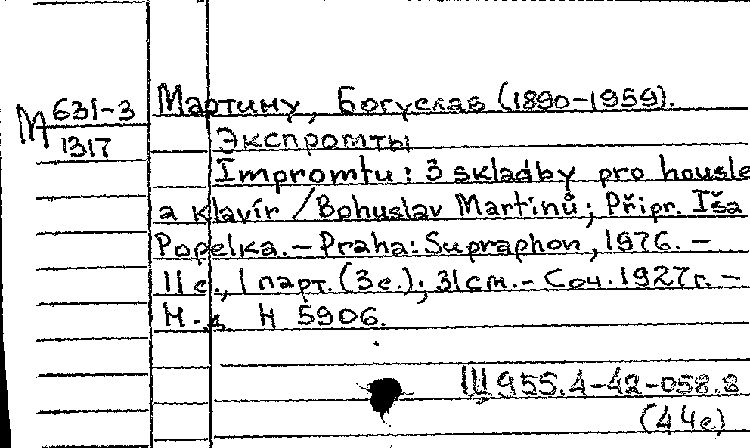 М 631-3
1317
Мартину, Богуслав (1890-1959).
Экспромты
Impromtu: 3 skladby pro housle
a klavír / Bohuslav Martinů; Připr. Iša
Popelka. - Praha: Supraphon, 1976. -
11 с., 1 парт. (3 с.); 31 см. - Соч. 1927 г. -
Н. д. H 5906.
Щ955.4-42-058.8
(44е)